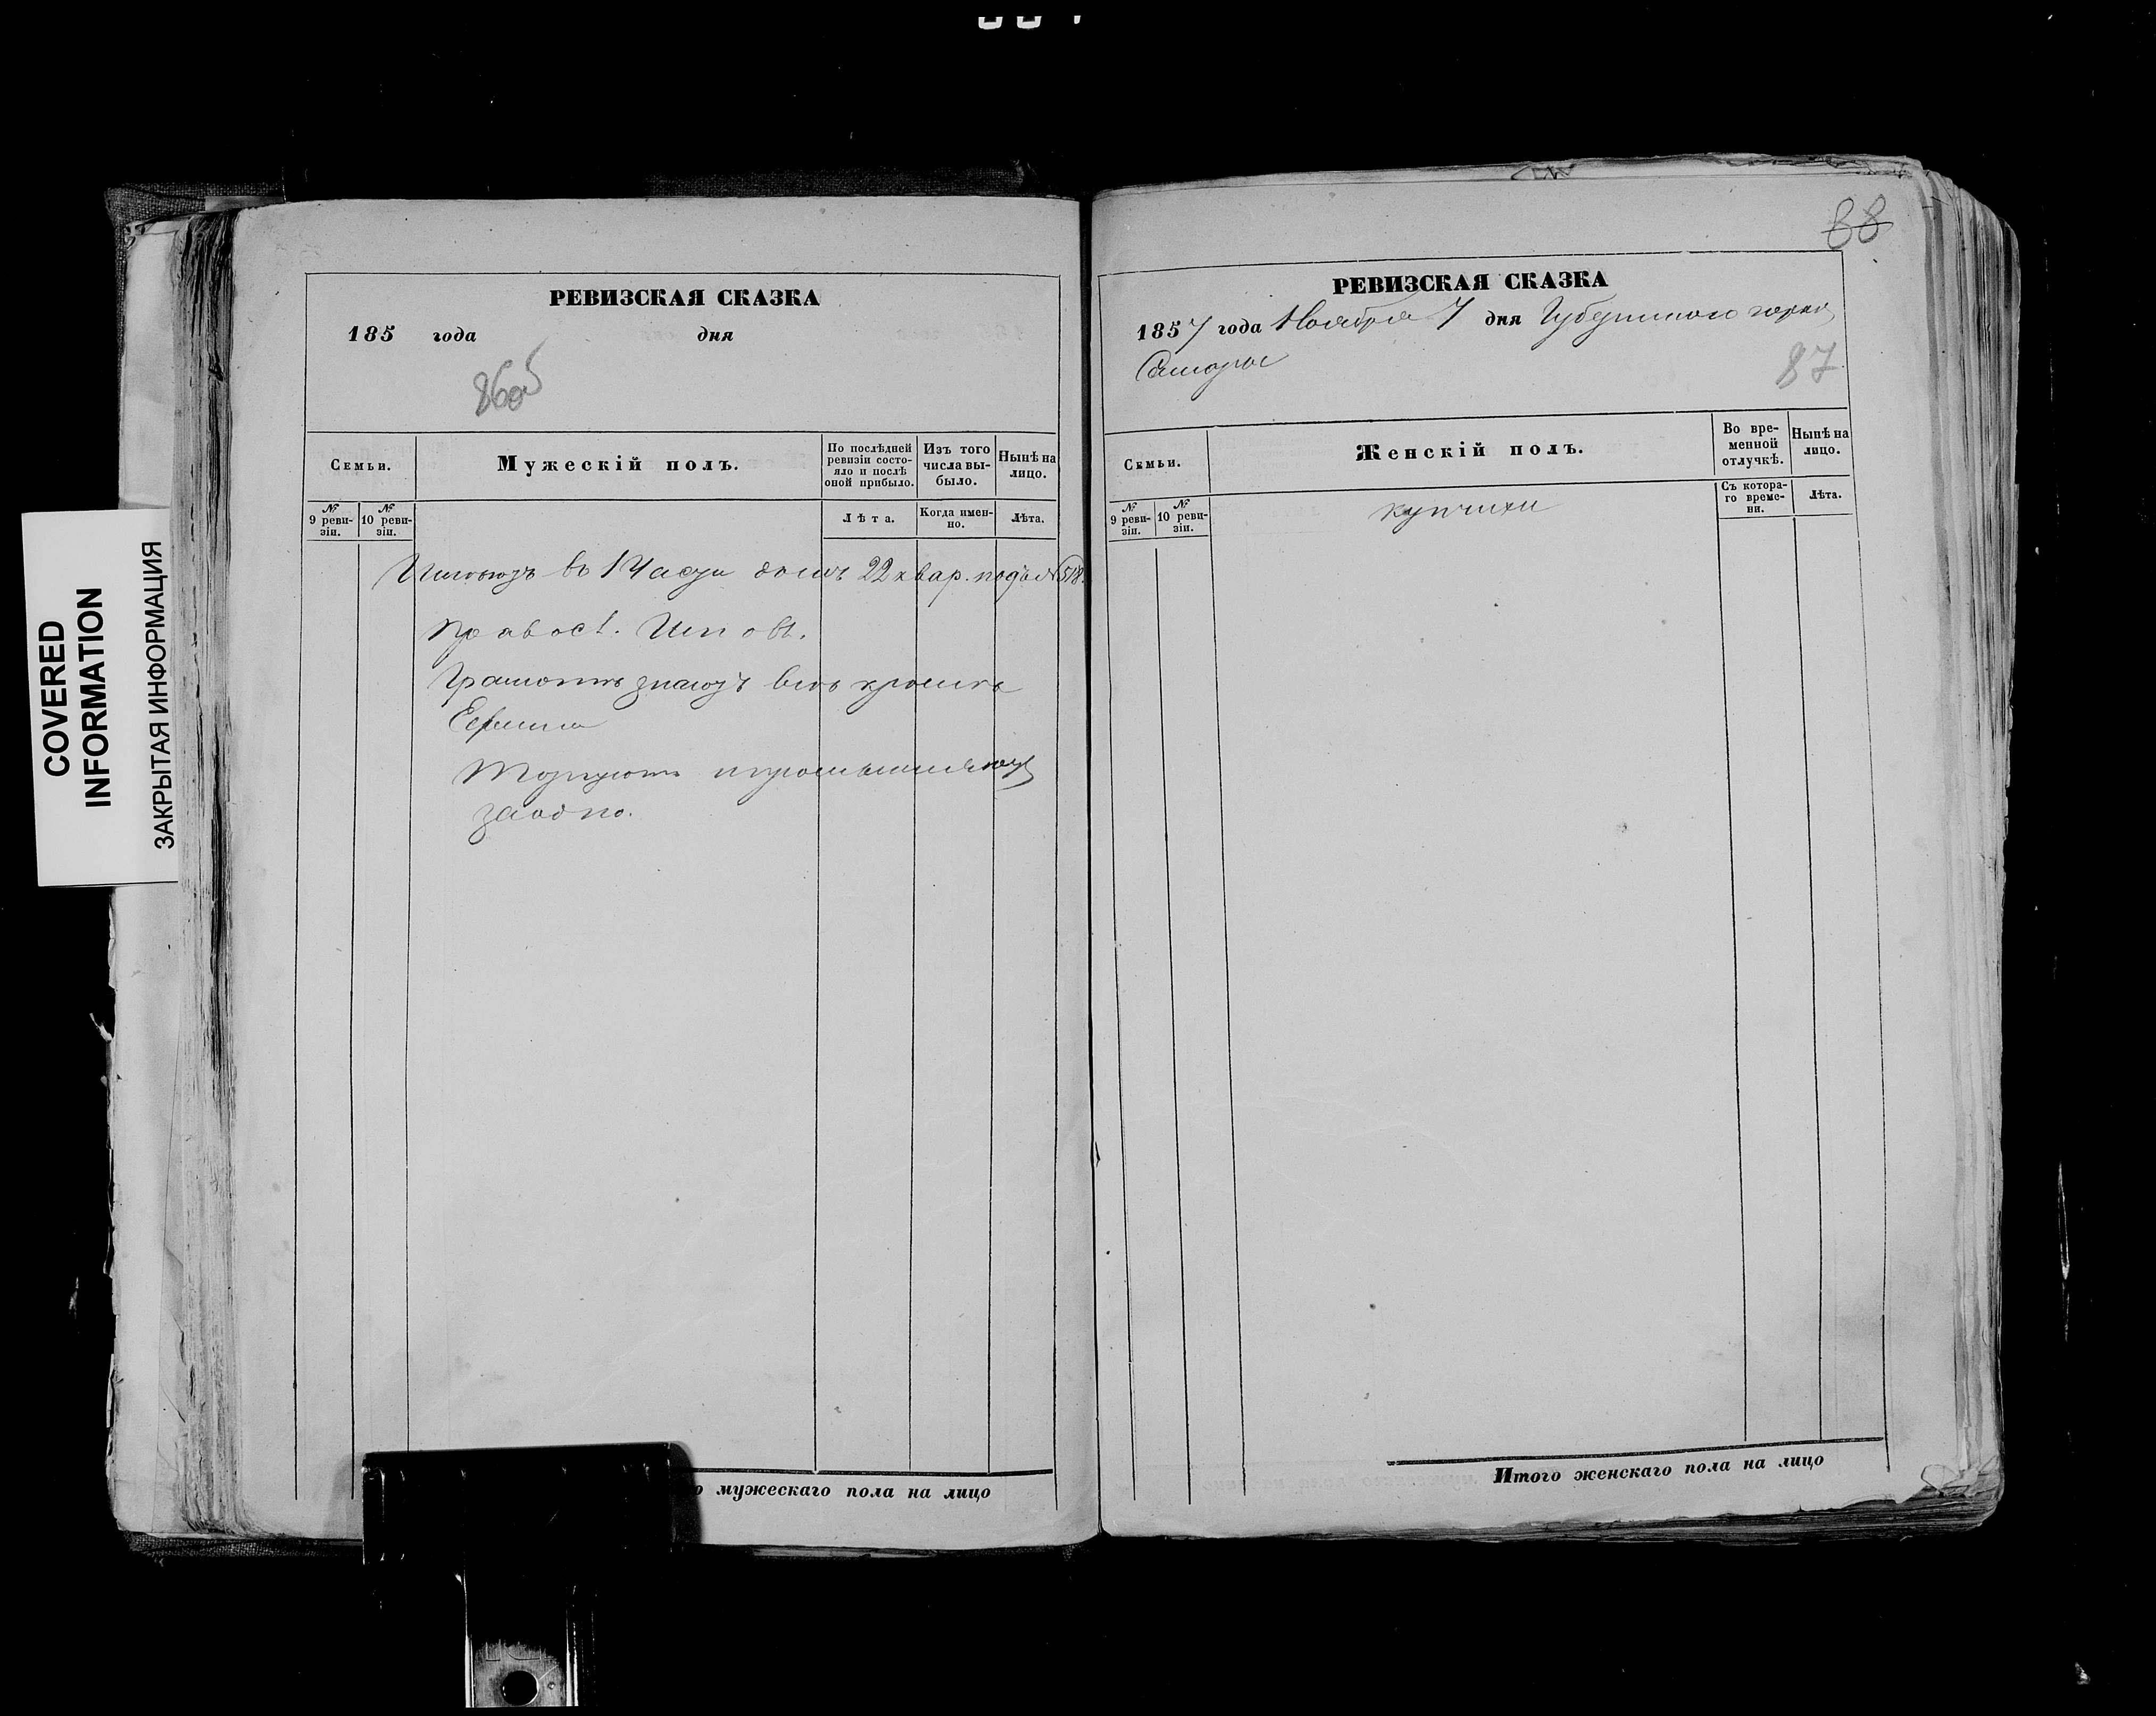 COVERED
INFORMATION
ЗАКРЫТАЯ ИНФОРМАЦИЯ
РЕВИЗСКАЯ СКАЗКА
185 года дня
86об
Семьи.
Мужескій полъ.
По послѣдней ревизіи состояло и послѣ оной прибыло.
Изъ того числа выбыло.
Нынѣ на лицо.
№ 9 ревизіи.
№ 10 ревизіи.
Лѣта.
Когда именно.
Лѣта.
Имѣютъ въ 1 Части домъ 22 квар. подъ № 518.
Православ. Испов.
Грамотѣ знаютъ всѣ кромѣ
Ефима
Торгуютъ и промышляютъ
заодно.
о мужескаго пола на лицо
88
РЕВИЗСКАЯ СКАЗКА
1857 года Ноября 7 дня Губернскаго города
Самары
87
Семьи.
Женскій полъ.
Во временной отлучкѣ.
Нынѣ на лицо.
№ 9 ревизіи.
№ 10 ревизіи.
купчихи
Съ котораго времени.
Лѣта.
Итого женскаго пола на лицо